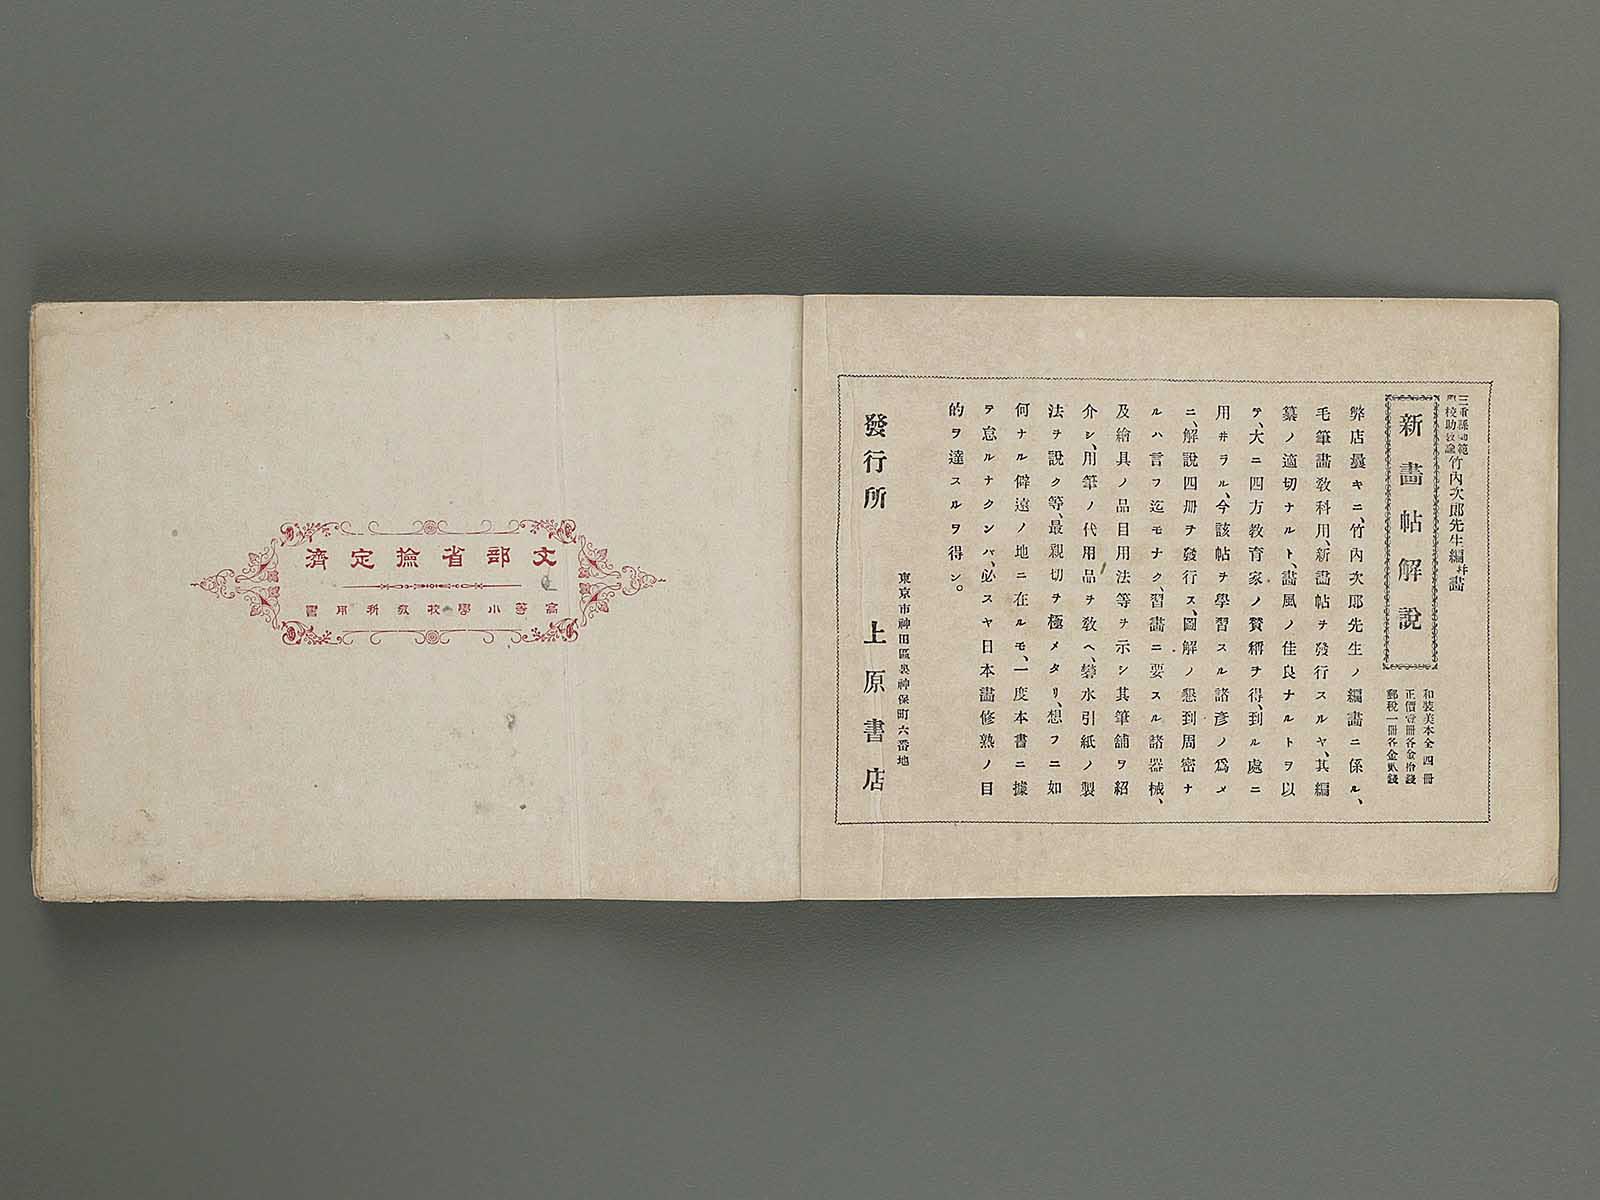 三重縣師範學校助教諭 竹內次郎先生編并畫
新畫帖解說
和裝美本全四冊
正價壹冊各金拾錢
郵稅一冊各金貳錢
弊店曩キニ、竹內次郎先生ノ編畫ニ係ル、
毛筆畫敎科用、新畵帖ヲ發行スルヤ、其編
纂ノ適切ナルト、畵風ノ佳良ナルトヲ以
テ、大ニ四方敎育家ノ賛稱ヲ得、到ル處ニ
用井ラル、今該帖ヲ學習スル諸彥ノ爲メ
ニ、解說四册ヲ發行ス、圖解ノ懇到周密ナ
ルハ言フ迄モナク、習畵ニ要スル諸器械、
及繪具ノ品目用法等ヲ示シ其筆舖ヲ紹
介シ、用筆ノ代用品ヲ敎ヘ、礬水引紙ノ製
法ヲ說ク等、最親切ヲ極メタリ、想フニ如
何ナル僻遠ノ地ニ在ルモ、一度本書ニ據
テ怠ルナクンバ、必スヤ日本畵修熟ノ目
的ヲ達スルヲ得ン。
東京市神田區裏神保町六番地
發行所 上原書店
文部省撿定濟
高等小學校敎科用書